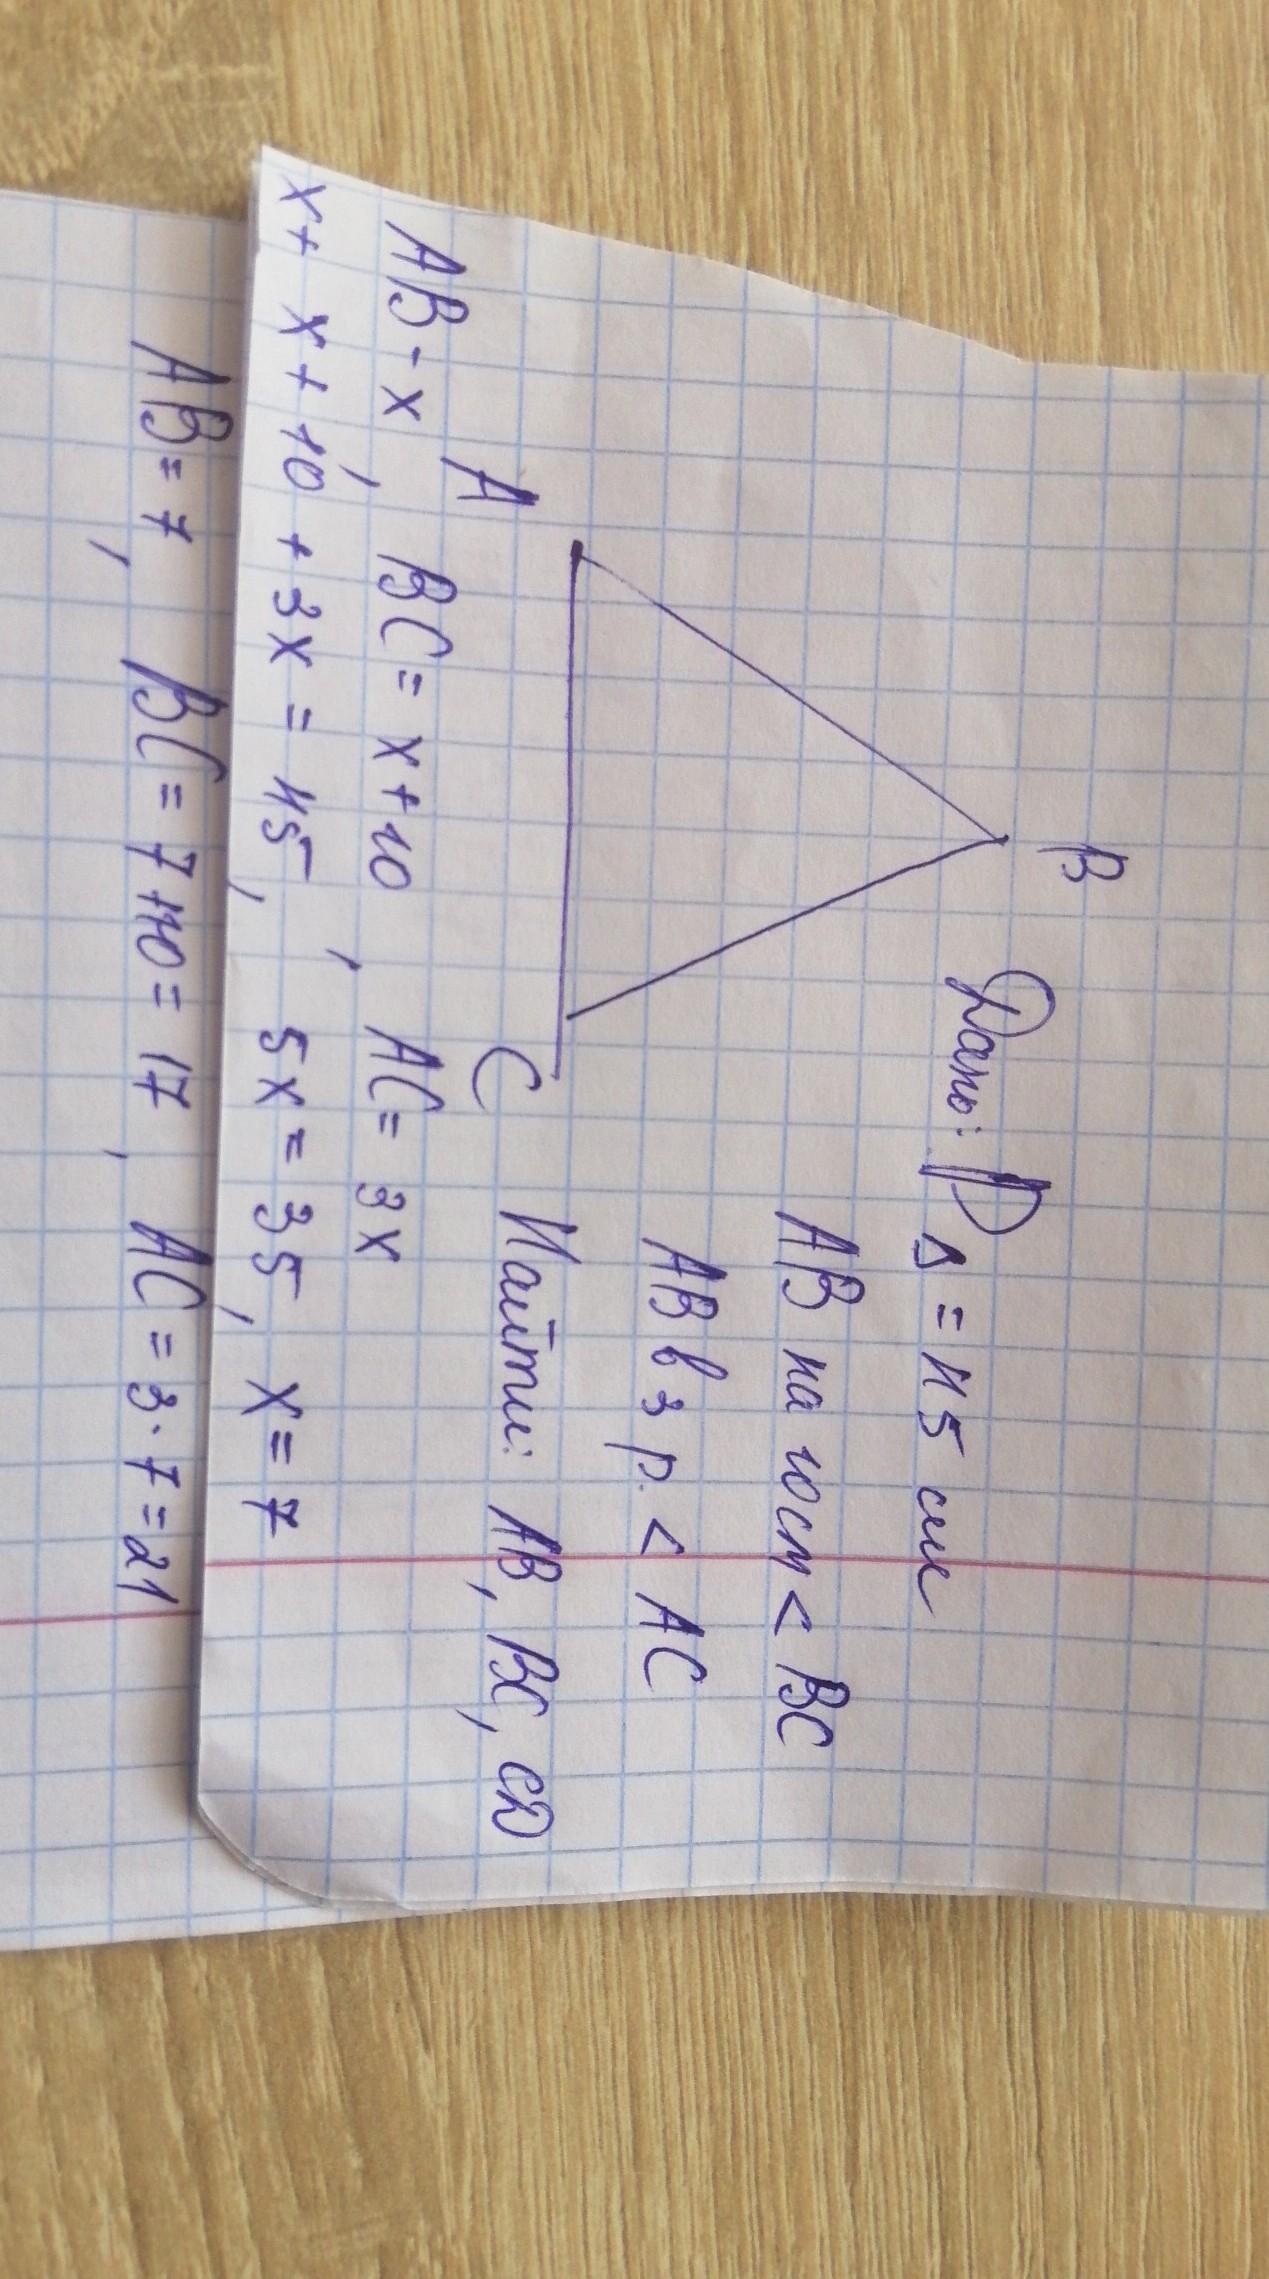 B
Дано: P Δ = 45 см
AB на 10см < BC
AB в 3 р. < AC
A
C
Найти: AB, BC, CD
AB - x, BC = x + 10, AC = 3x
x + x + 10 + 3x = 45, 5x = 35, x = 7
AB = 7, BC = 7+10 = 17, AC = 3 · 7 = 21